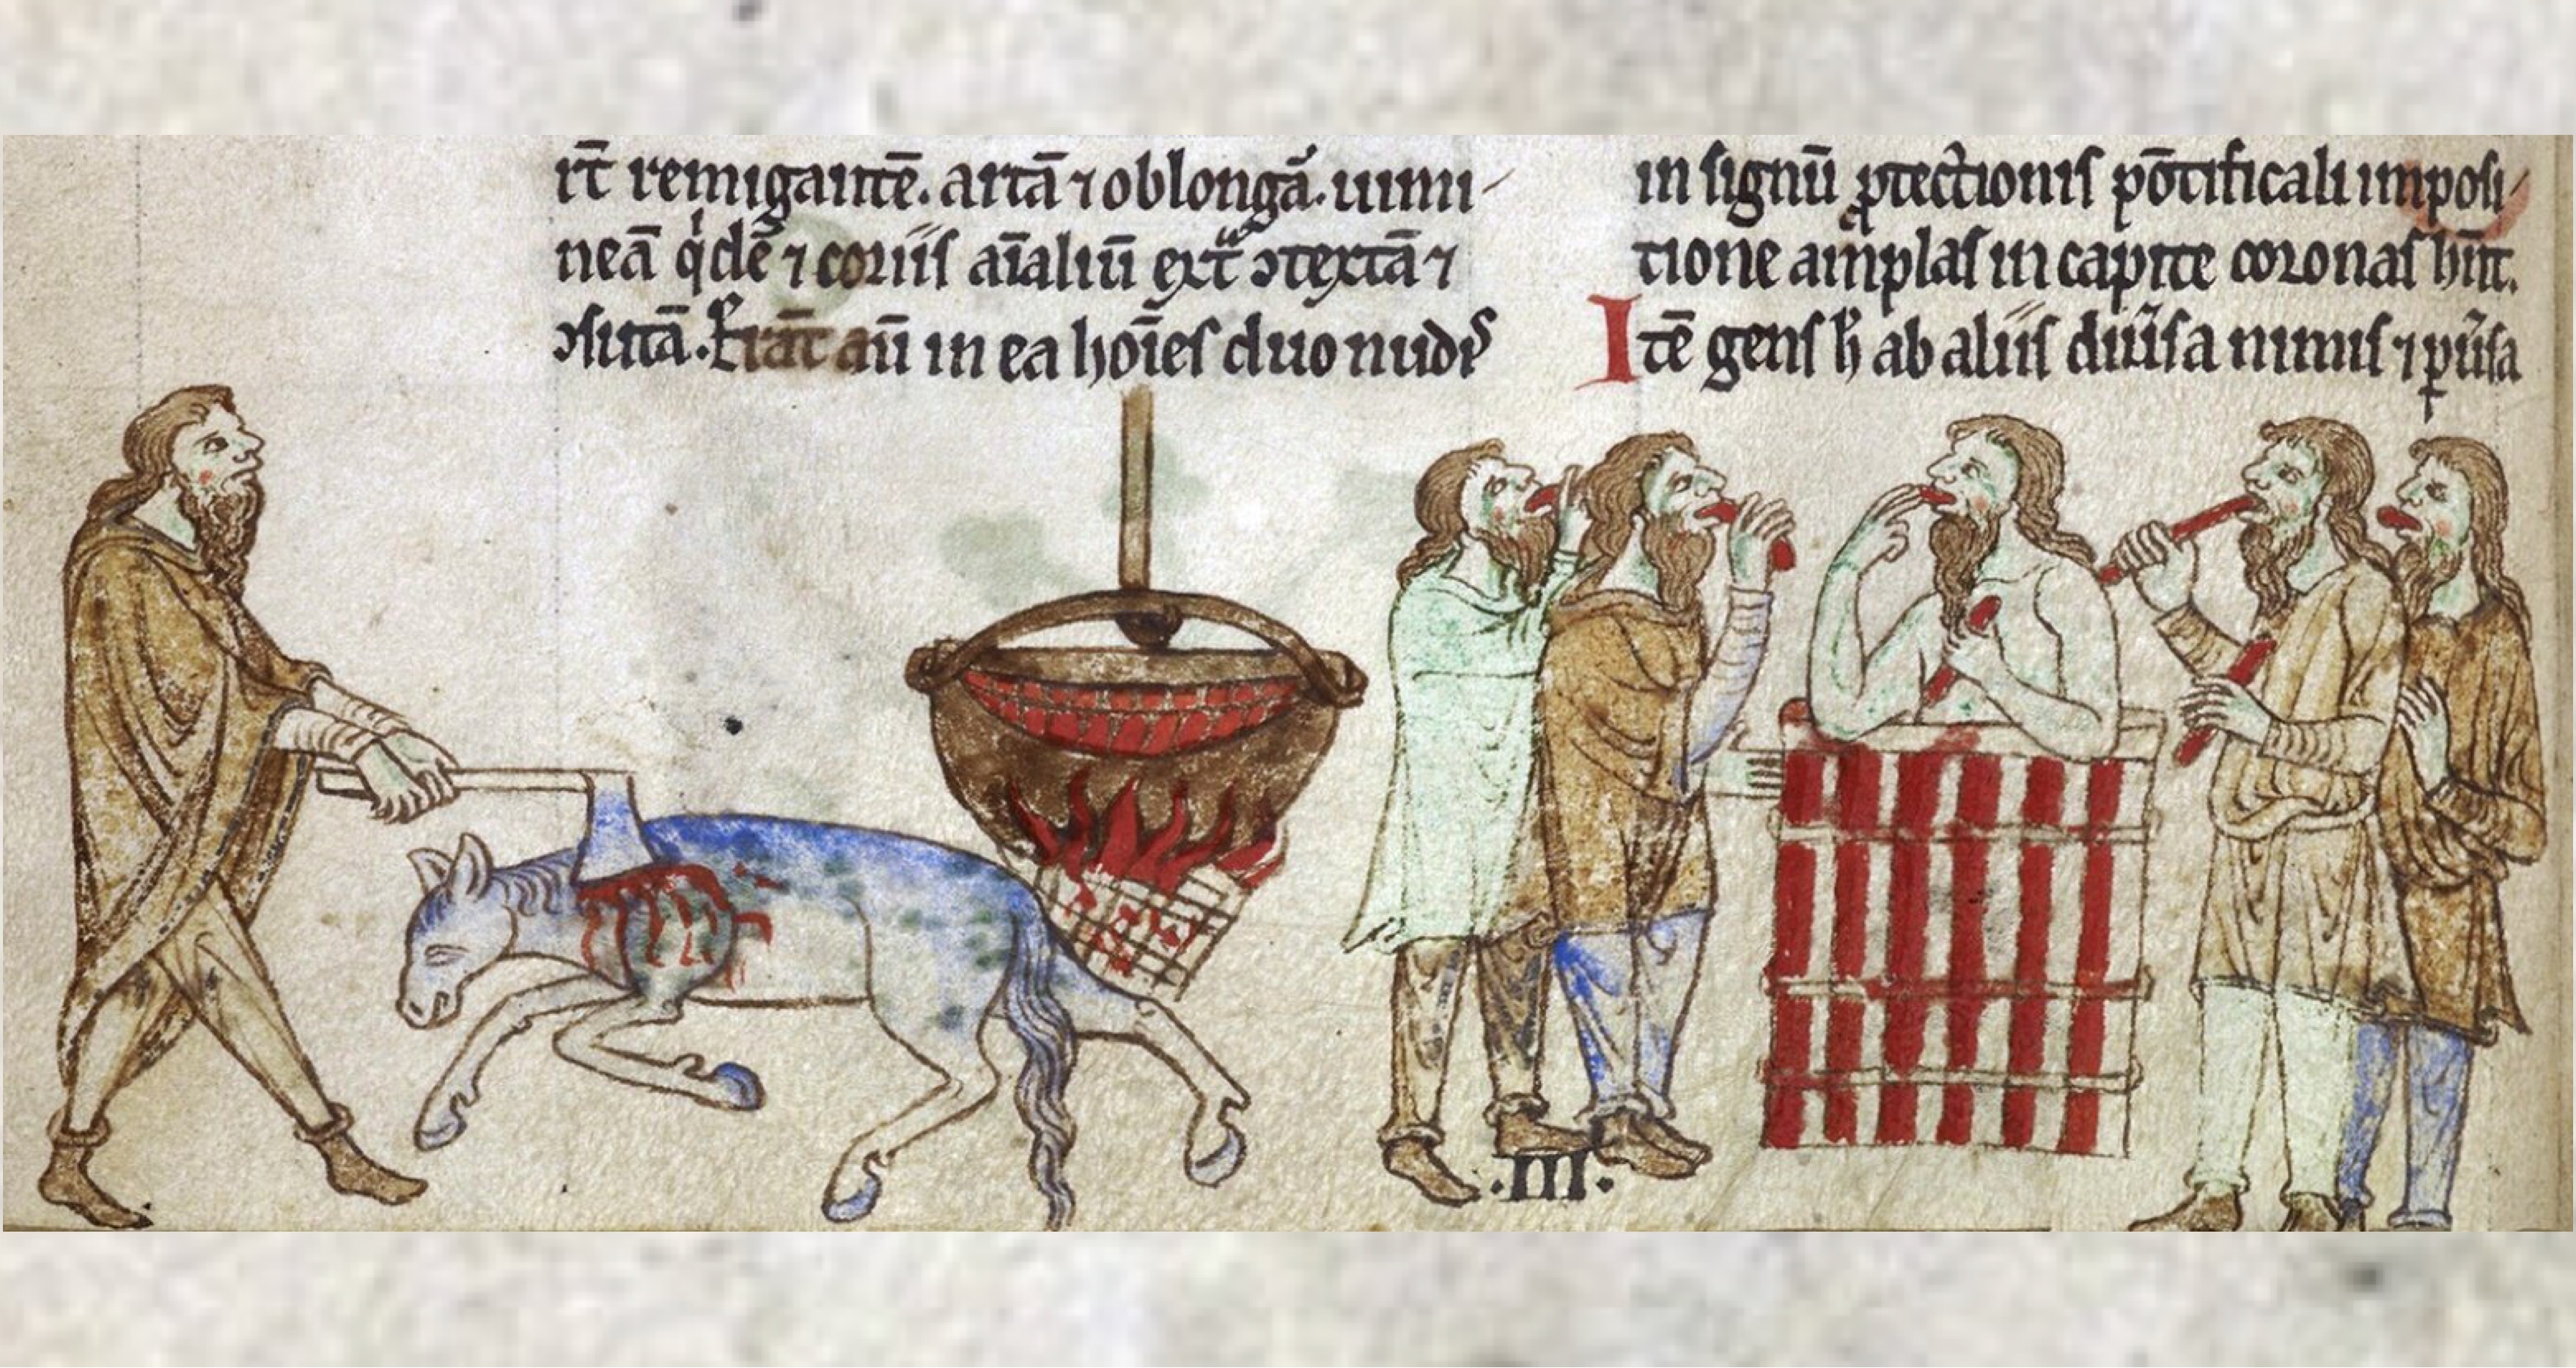 rt̄ remigantē. artā ⁊ oblongā. uimi-
neā qͥdē ⁊ coriis aīaliū ext̄ ꝯtextā ⁊
ꝯsutā. Erāt aū in ea hoīes duo nudi
in signū ꝓtectionis pōtificali imposi-
tione amplas in capite coronas hn̄t.
Itē gens h̄ ab aliis diu̾sa nimis ⁊ ꝑu̾sa
.III.